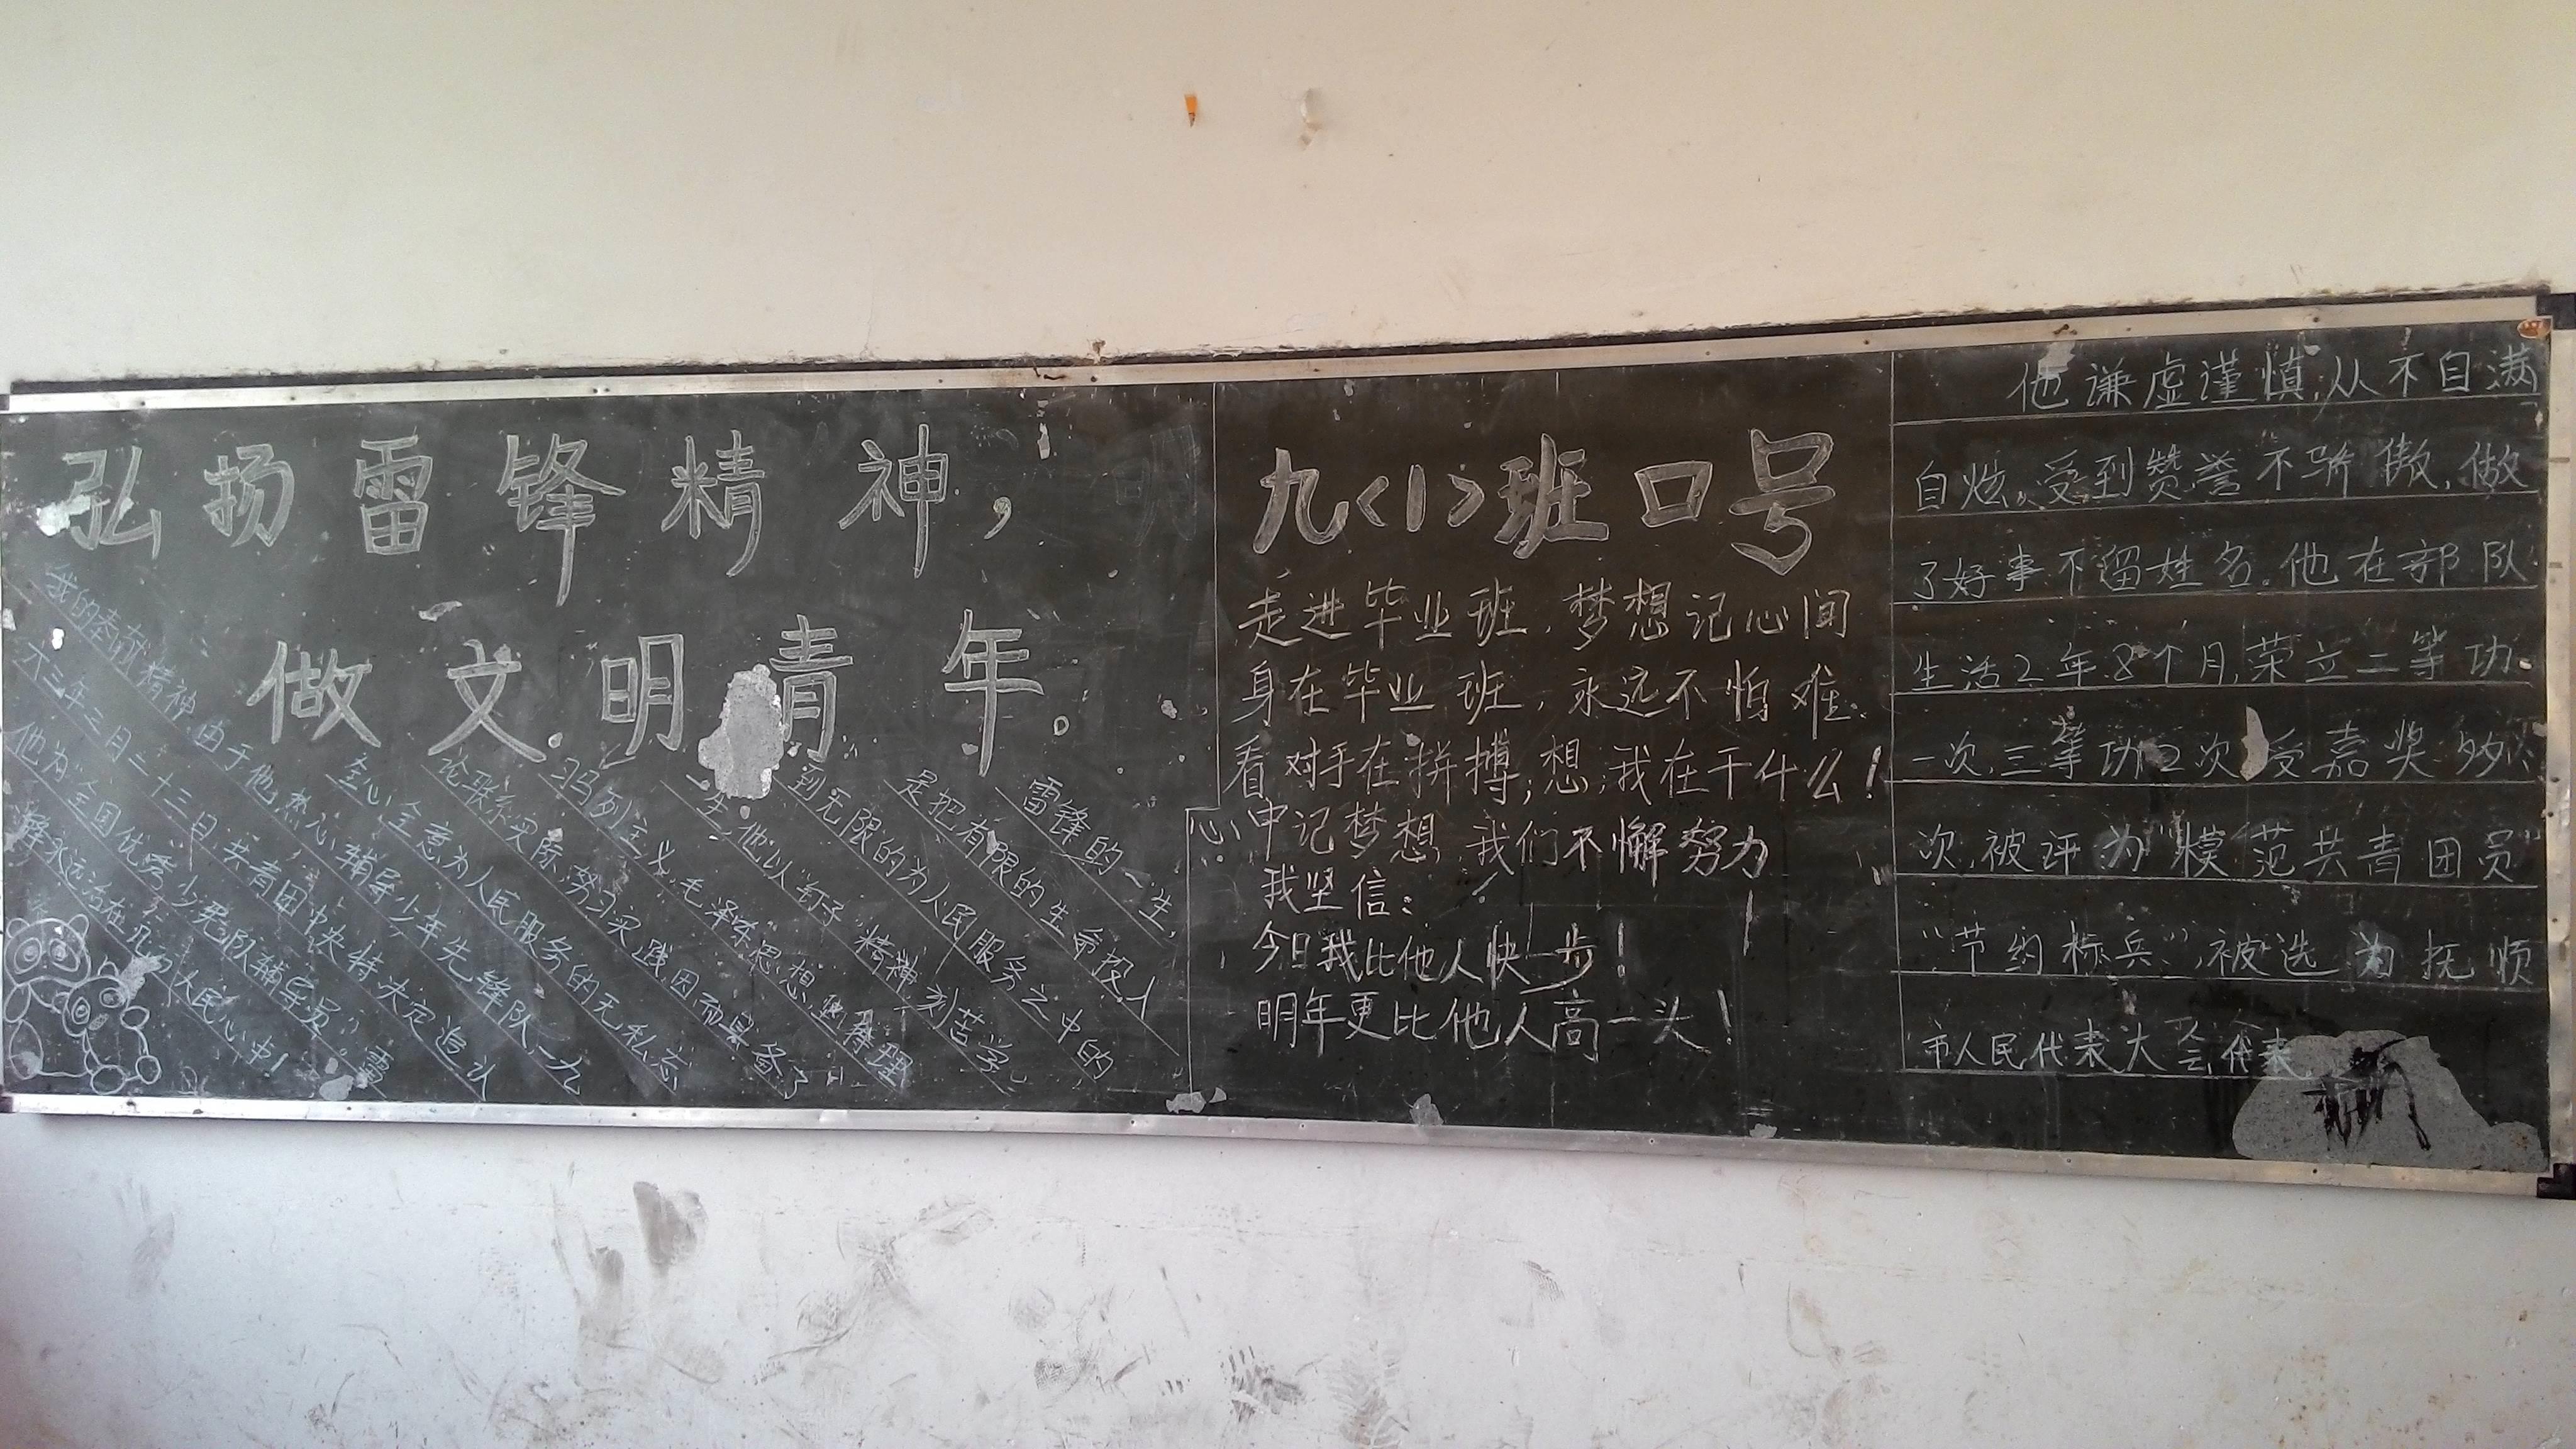 弘扬雷锋精神，
做文明青年。
雷锋的一生，
是把有限的生命投入
到无限的为人民服务之中的
一生，他以“钉子”精神刻苦学
习马列主义，毛泽东思想，坚持理
论联系实际，努力实践因而具备了
全心全意为人民服务的无私忘
我的奉献精神。由于他热心辅导少年先锋队，一九
六三年三月二十三日，共青团中央特决定追认
他为“全国优秀少先队辅导员”。雷
锋永远活在几万人民心中！
九<1>班口号
走进毕业班，梦想记心间
身在毕业班，永远不怕难.
看对手在拼搏；想，我在干什么！
心中记梦想，我们不懈努力
我坚信：
今日我比他人快一步！
明年更比他人高一头！
他谦虚谨慎，从不自满
自炫，受到赞誉不骄傲，做
了好事不留姓名。他在部队
生活2年8个月，荣立二等功
一次，三等功2次，受嘉奖多
次，被评为“模范共青团员”
“节约标兵”，被选为抚顺
市人民代表大会代表